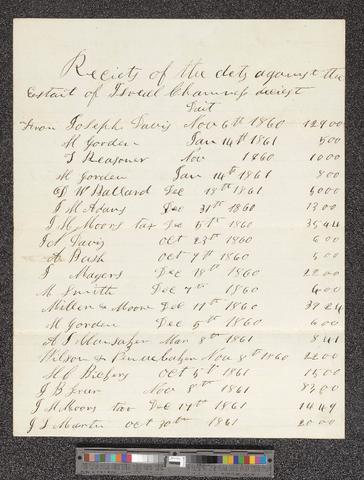 Recicts of the dets against the
Estait of Isreal Chamness deciest
Dait
From Joseph Davis Nov 6th 1860 1200
M Gorden Jan 14th 1861 500
T Reasoner Nov 1860 1000
M Gorden Jan 14th 1861 800
W Ballard Dec 18th 1861 5000
J M Adams Dec 31th 1860 1300
J H Moors tax Dec 5th 1860 3544
Davis Oct 23th 1860 600
Bash Oct 7th 1860 500
J Mayers Dec 18th 1860 2200
M Smith Dec 7th 1860 400
Miller & Moore Dec 17th 1860 3924
M Gorden Dec 5th 1860 600
A J Mar 8th 1861 841
Welson & Nov 8th 1860 2200
Oct 5th 1861 1500
J B Nov 8th 1861 8300
J H Moors tax Dec 17th 1861 1449
J S Martin Oct 30th 1861 2000